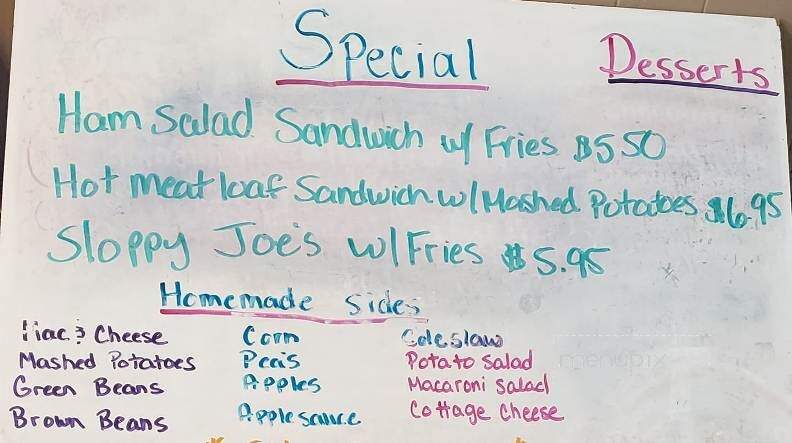 Special Desserts
Ham Salad Sandwich w/ Fries $5.50
Hot meat loaf Sandwich w/ Mashed Potatoes $6.95
Sloppy Joe's w/ Fries $5.95
Homemade Sides
Mac & Cheese Corn Coleslaw
Mashed Potatoes Peas Potato Salad
Green Beans Apples Macaroni Salad
Brown Beans Applesauce Cottage Cheese
menupix